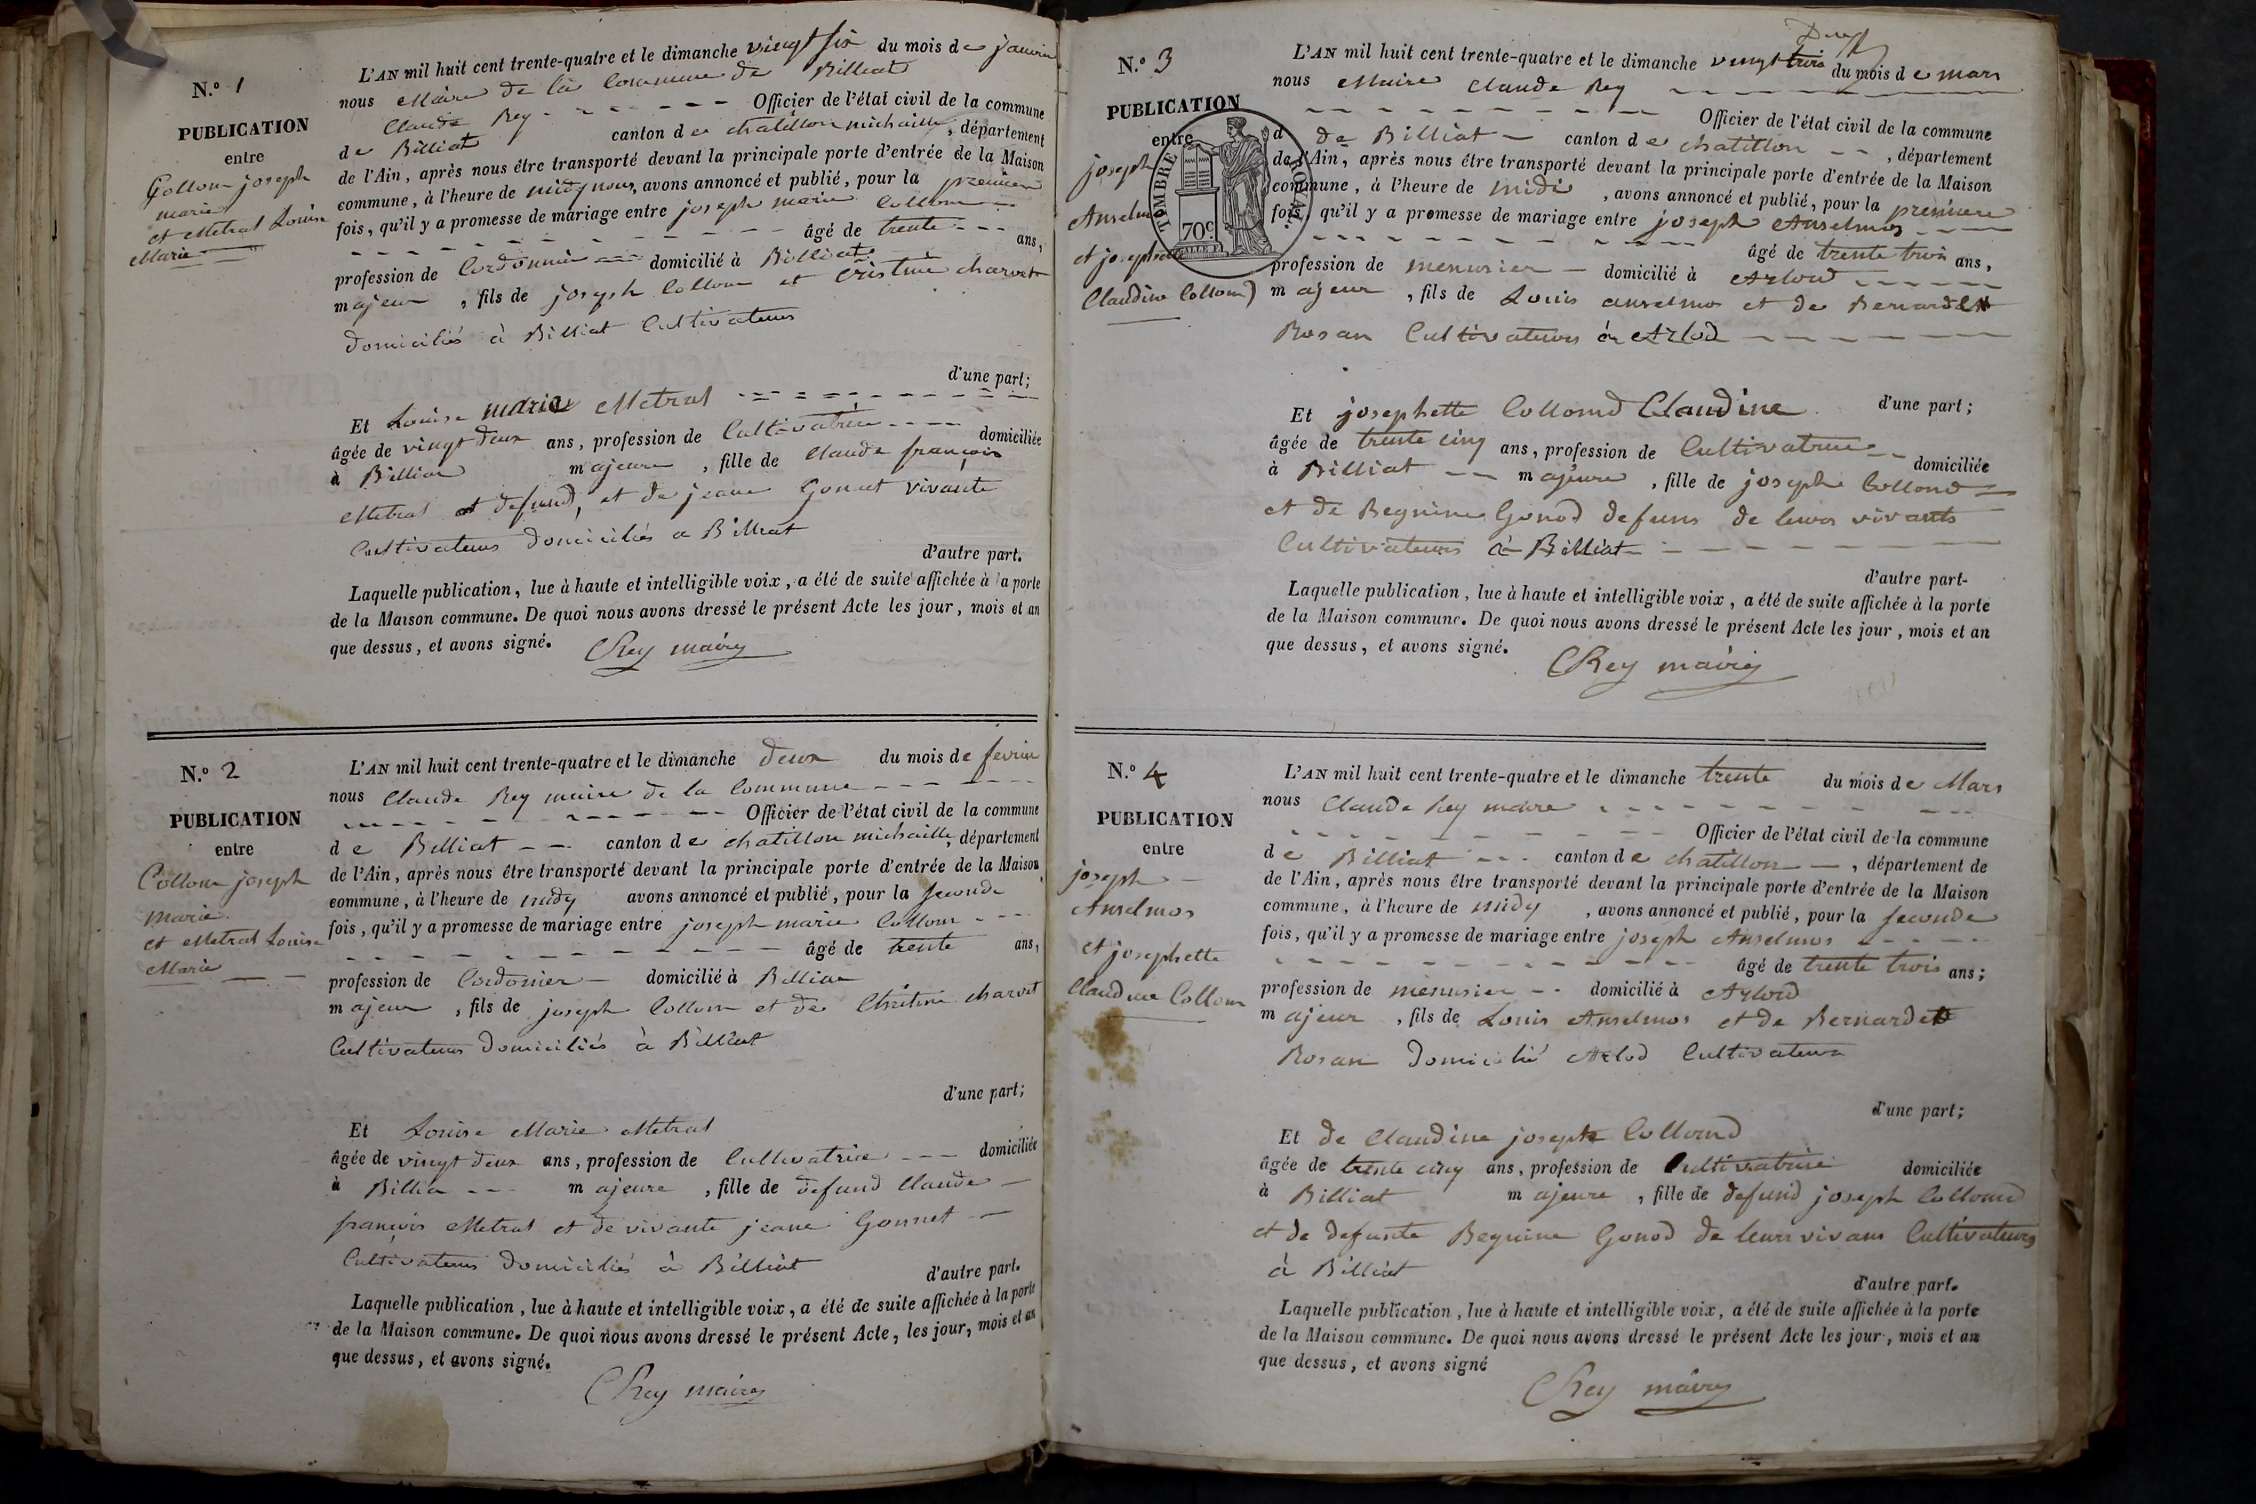 N.º 1
PUBLICATION
entre
Collom joseph
marie
et Metral Louise
Marie
L'AN mil huit cent trente-quatre et le dimanche vingt six du mois de janvier
nous Maire de la Commune de Billiat
Claude Rey Officier de l'état civil de la commune
de Billiat canton de chatillon michaille, département
de l'Ain, après nous être transporté devant la principale porte d'entrée de la Maison
commune, à l'heure de midy nous, avons annoncé et publié, pour la premiere
fois, qu'il y a promesse de mariage entre joseph marie Collom
âgé de trente ans,
profession de Cordonnier domicilié à Billiat
majeur, fils de joseph Collom et Cristine charvet
domiciliés à Billiat Cultivateurs
d'une part;
Et Louise marie Metral
âgée de vingt deux ans, profession de Cultivatrice domiciliée
à Billiat majeure, fille de Claude françois
Metral et defund, et de jeane Gonnet vivante
Cultivateurs domiciliés a Billiat
d'autre part.
Laquelle publication, lue à haute et intelligible voix, a été de suite affichée à la porte
de la Maison commune. De quoi nous avons dressé le présent Acte les jour, mois et an
que dessus, et avons signé.
CRey maire
N.º 2
PUBLICATION
entre
Collom joseph
Marie
et Metral Louise
Marie
L'AN mil huit cent trente-quatre et le dimanche deux du mois de fevrier
nous Claude Rey maire de la Commune
Officier de l'état civil de la commune
de Billiat canton de chatillon michaille, département
de l'Ain, après nous être transporté devant la principale porte d'entrée de la Maison
commune, à l'heure de midy avons annoncé et publié, pour la seconde
fois, qu'il y a promesse de mariage entre joseph marie Collom
âgé de trente ans,
profession de Cordonier domicilié à Billiat
majeur, fils de joseph Collom et de Chritine charvet
Cultivateurs domiciliés à Billiat
d'une part;
Et Louise Marie Metral
âgée de vingt deux ans, profession de Cultivatrice domiciliée
à Billia majeure, fille de defund Claude
françois Metral et de vivante jeane Gonnet
Cultivateurs domiciliés à Billiat
d'autre part.
Laquelle publication, lue à haute et intelligible voix, a été de suite affichée à la porte
de la Maison commune. De quoi nous avons dressé le présent Acte, les jour, mois et an
que dessus, et avons signé.
CRey maire
N.º 3
PUBLICATION
entre
joseph
Anselmos
et josephette
Claudine Collomd
TIMBRE ROYAL
70c
L'AN mil huit cent trente-quatre et le dimanche vingt trois du mois de mars
nous Maire Claude Rey
Officier de l'état civil de la commune
d de Billiat canton de chatillon, département
de l'Ain, après nous être transporté devant la principale porte d'entrée de la Maison
commune, à l'heure de midi, avons annoncé et publié, pour la premiere
fois, qu'il y a promesse de mariage entre joseph Anselmos
âgé de trente trois ans,
profession de menusier domicilié à Arlod
majeur, fils de Louis anselmos et de Bernardet
Rosan Cultivateurs à Arlod
d'une part;
Et josephette Collomd Claudine
âgée de trente cinq ans, profession de Cultivatrice domiciliée
à Billiat majeure, fille de joseph Collomd
et de Beguine Gonod defuns de leurs vivants
Cultivateurs à Billiat
d'autre part-
Laquelle publication, lue à haute et intelligible voix, a été de suite affichée à la porte
de la Maison commune. De quoi nous avons dressé le présent Acte les jour, mois et an
que dessus, et avons signé.
CRey maire
N.º 4
PUBLICATION
entre
joseph
Anselmos
et josephette
Claudine Collom
L'AN mil huit cent trente-quatre et le dimanche trente du mois de Mars
nous Claude Rey maire
Officier de l'état civil de la commune
de Billiat canton de chatillon, département de
de l'Ain, après nous être transporté devant la principale porte d'entrée de la Maison
commune, à l'heure de midy, avons annoncé et publié, pour la seconde
fois, qu'il y a promesse de mariage entre joseph Anselmos
âgé de trente trois ans;
profession de menusier domicilié à Arlod
majeur, fils de Louis Anselmos et de Bernardet
Rosan domicilié Arlod Cultivateurs
d'une part;
Et de Claudine joseph Collomd
âgée de trente cinq ans, profession de Cultivatrice domiciliée
à Billiat majeure, fille de defund joseph Collomd
et de defunte Beguine Gonod de leurs vivans Cultivateurs
à Billiat
d'autre part.
Laquelle publication, lue à haute et intelligible voix, a été de suite affichée à la porte
de la Maison commune. De quoi nous avons dressé le présent Acte les jour, mois et an
que dessus, et avons signé
CRey maire